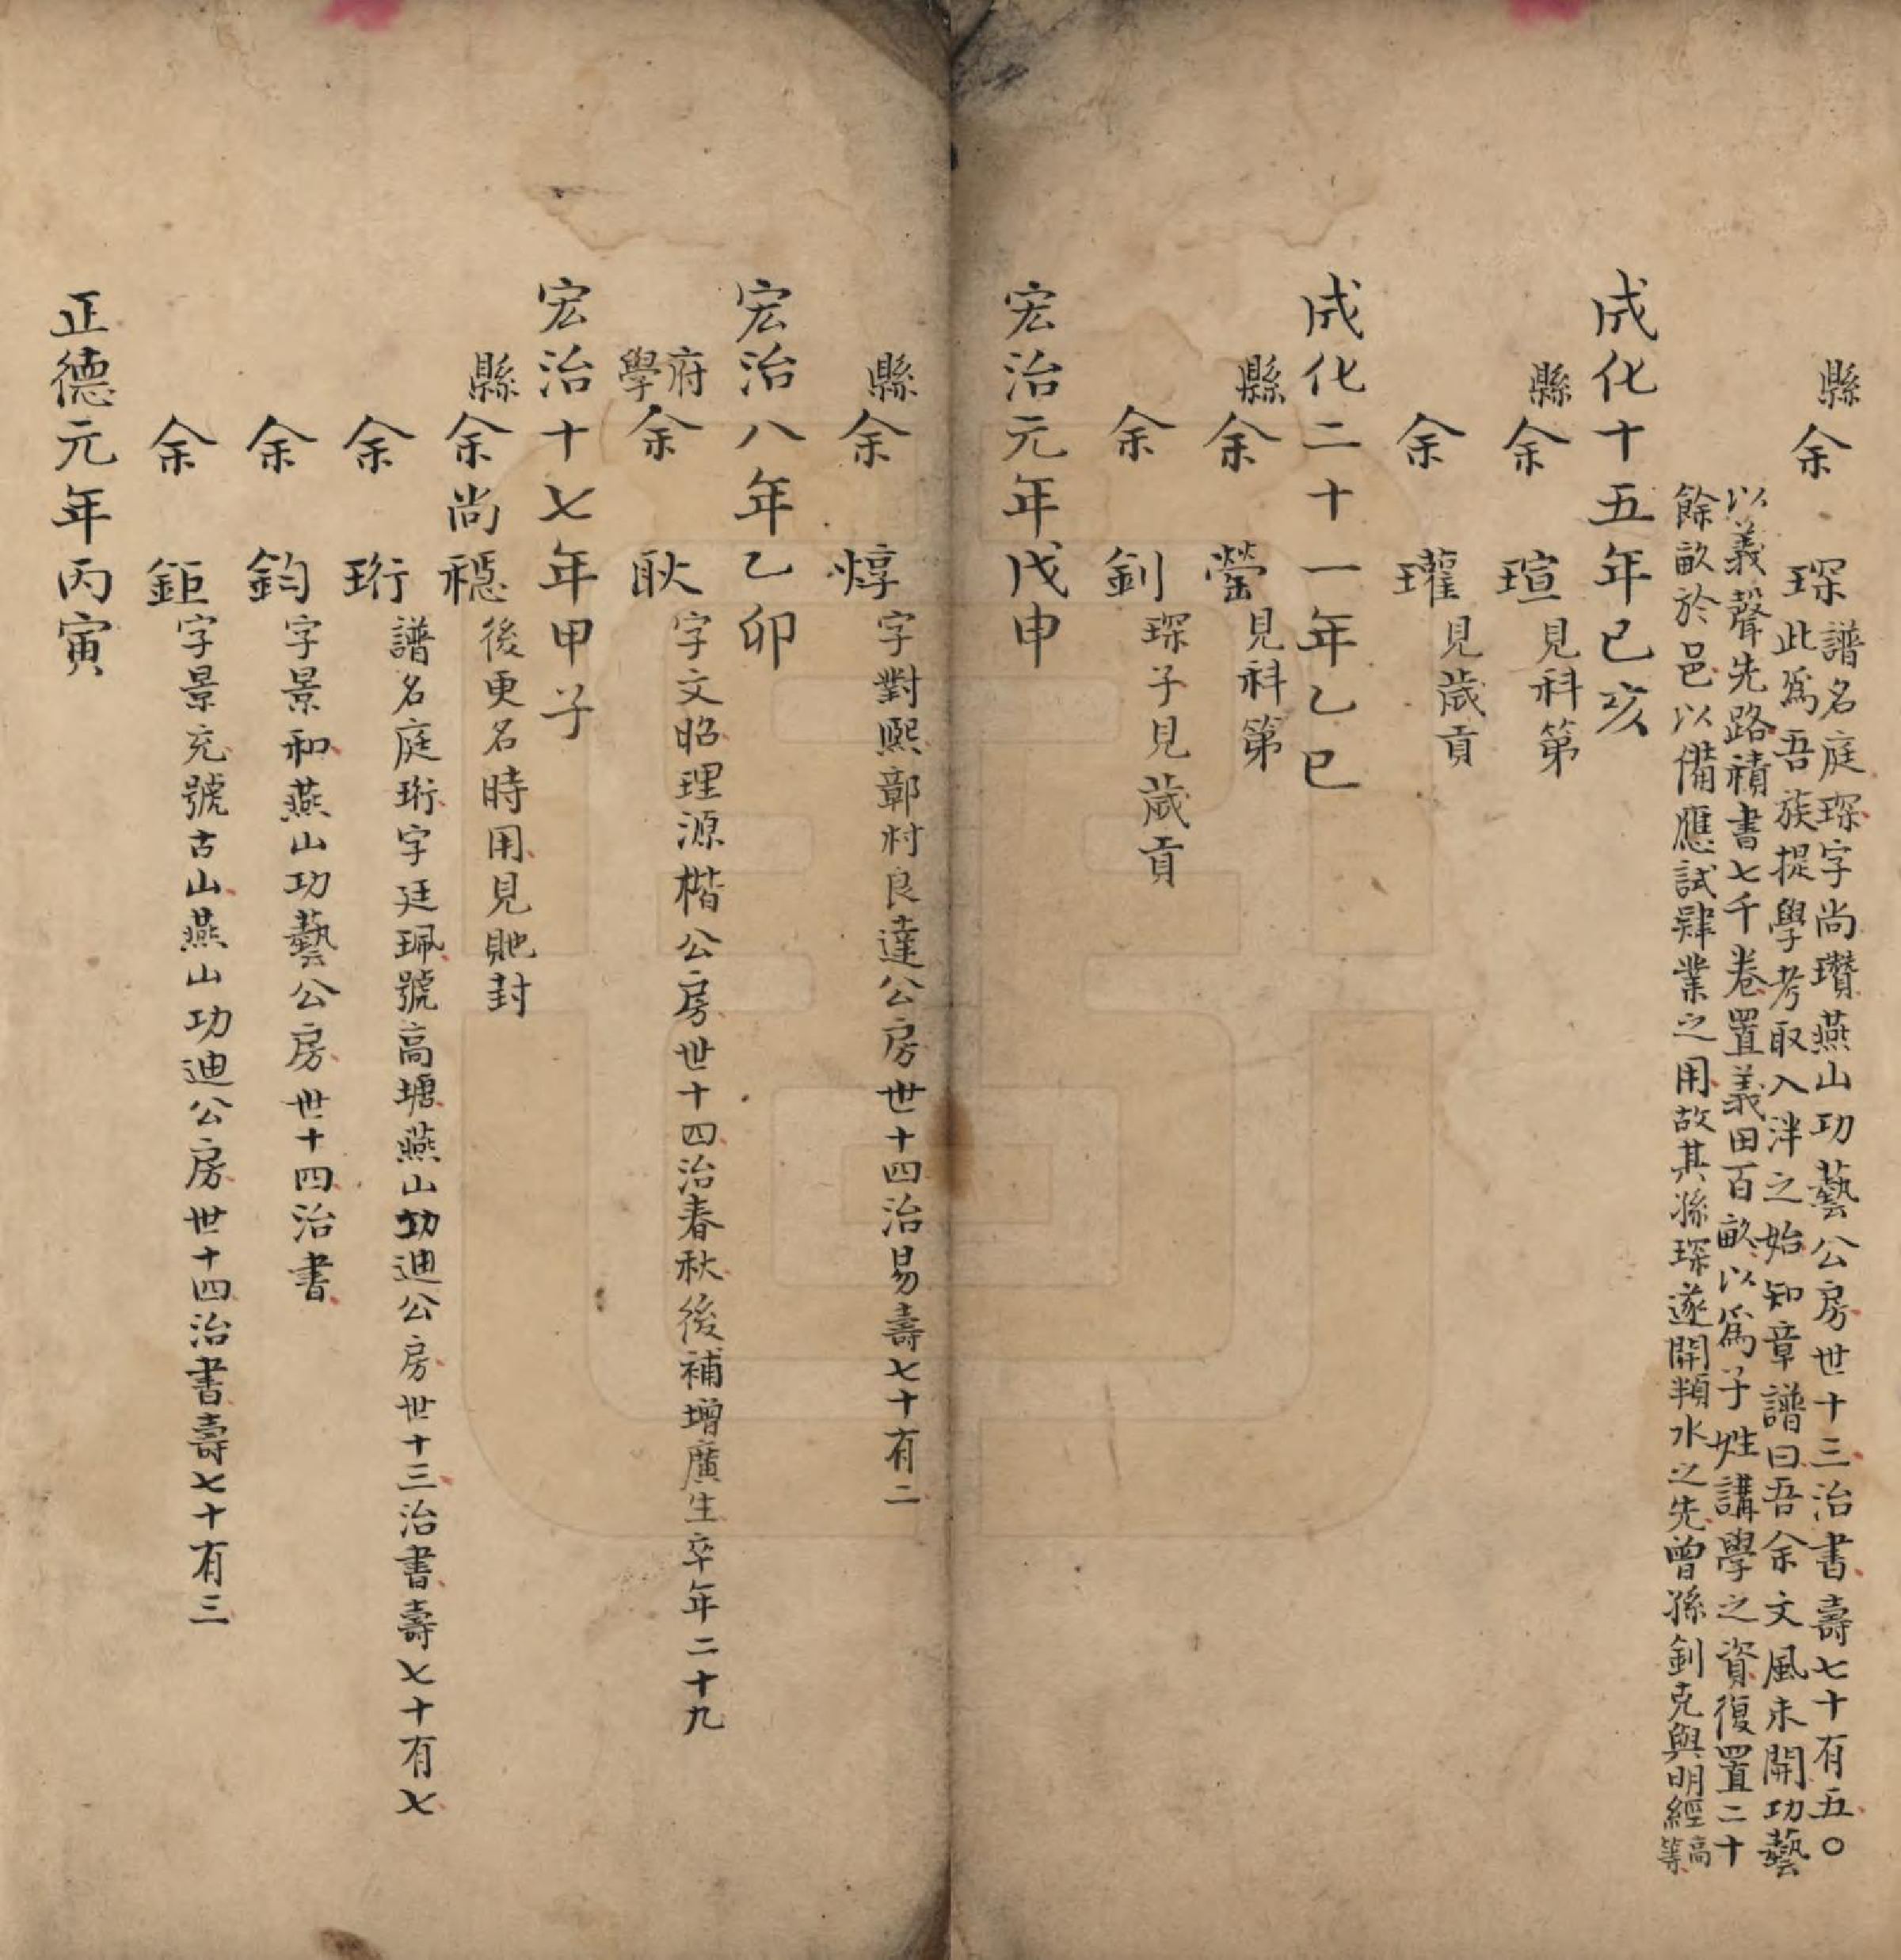 縣余 琛譜名庭琛字尚瓚燕山功藝公房世十三治書壽七十有五○
此爲吾族提學考取入泮之始知章譜曰吾余文風未開功藝
以義聲先路積書七千卷置義田百畝以爲子姓講學之資復置二十
餘畝於邑以備應試肄業之用故其孫琛遂開頖水之先曾孫釗克與明經高等
成化十五年己亥
縣余 瑄見科第
余 瓘見歲貢
成化二十一年乙巳
縣余 罃見科第
余 釗琛子見歲貢
宏治元年戊申
縣余 焞字對熙鄣村良達公房世十四治易壽七十有二
宏治八年乙卯
府學余 耿字文昭理源楷公房世十四治春秋後補增廣生卒年二十九
宏治十七年甲子
縣余尚穩後更名時用見貤封
余 珩譜名庭珩字廷珮號高塘燕山功迪公房世十三治書壽七十有七
余 鈞字景和燕山功藝公房世十四治書
余 鉅字景充號古山燕山功迪公房世十四治書壽七十有三
正德元年丙寅